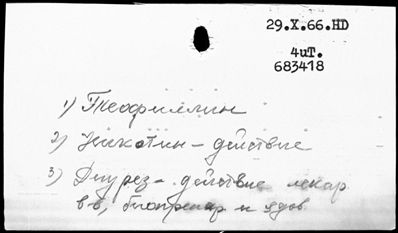 29.X.66.HD
4uT.
683418
1) Теофиллин
2) Никотин - действие
3) Диурез - действие лекар.
в-в, биопрепар и ядов